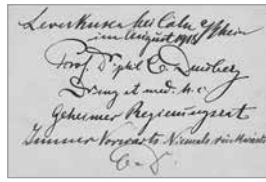 Leverkusen bei Cöln a/Rhein
im August 1918
Prof. Dr. phil. C. Duisberg
Dr. ing. et med. h. c.
Geheimer Regierungsrat
Immer Vorwärts Niemals rückwärts
C. D.